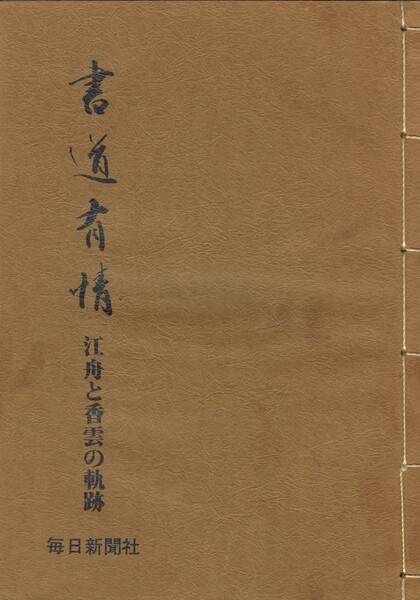 書道有情
江舟と香雲の軌跡
毎日新聞社